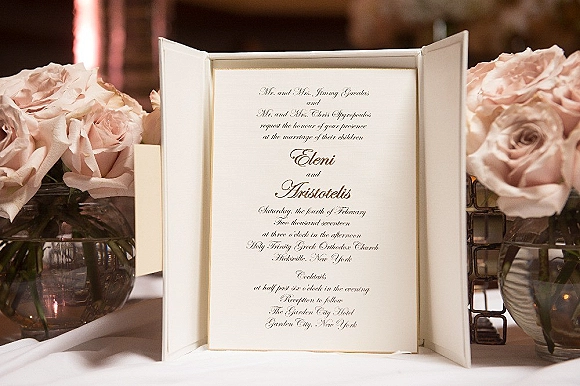 Mr. and Mrs. Jimmy Gavalas
and
Mr. and Mrs. Chris Spyropoulos
request the honour of your presence
at the marriage of their children
Eleni
and
Aristotelis
Saturday, the fourth of February
Two thousand seventeen
at three o'clock in the afternoon
Holy Trinity Greek Orthodox Church
Hicksville, New York
Cocktails
at half past six o'clock in the evening
Reception to follow
The Garden City Hotel
Garden City, New York